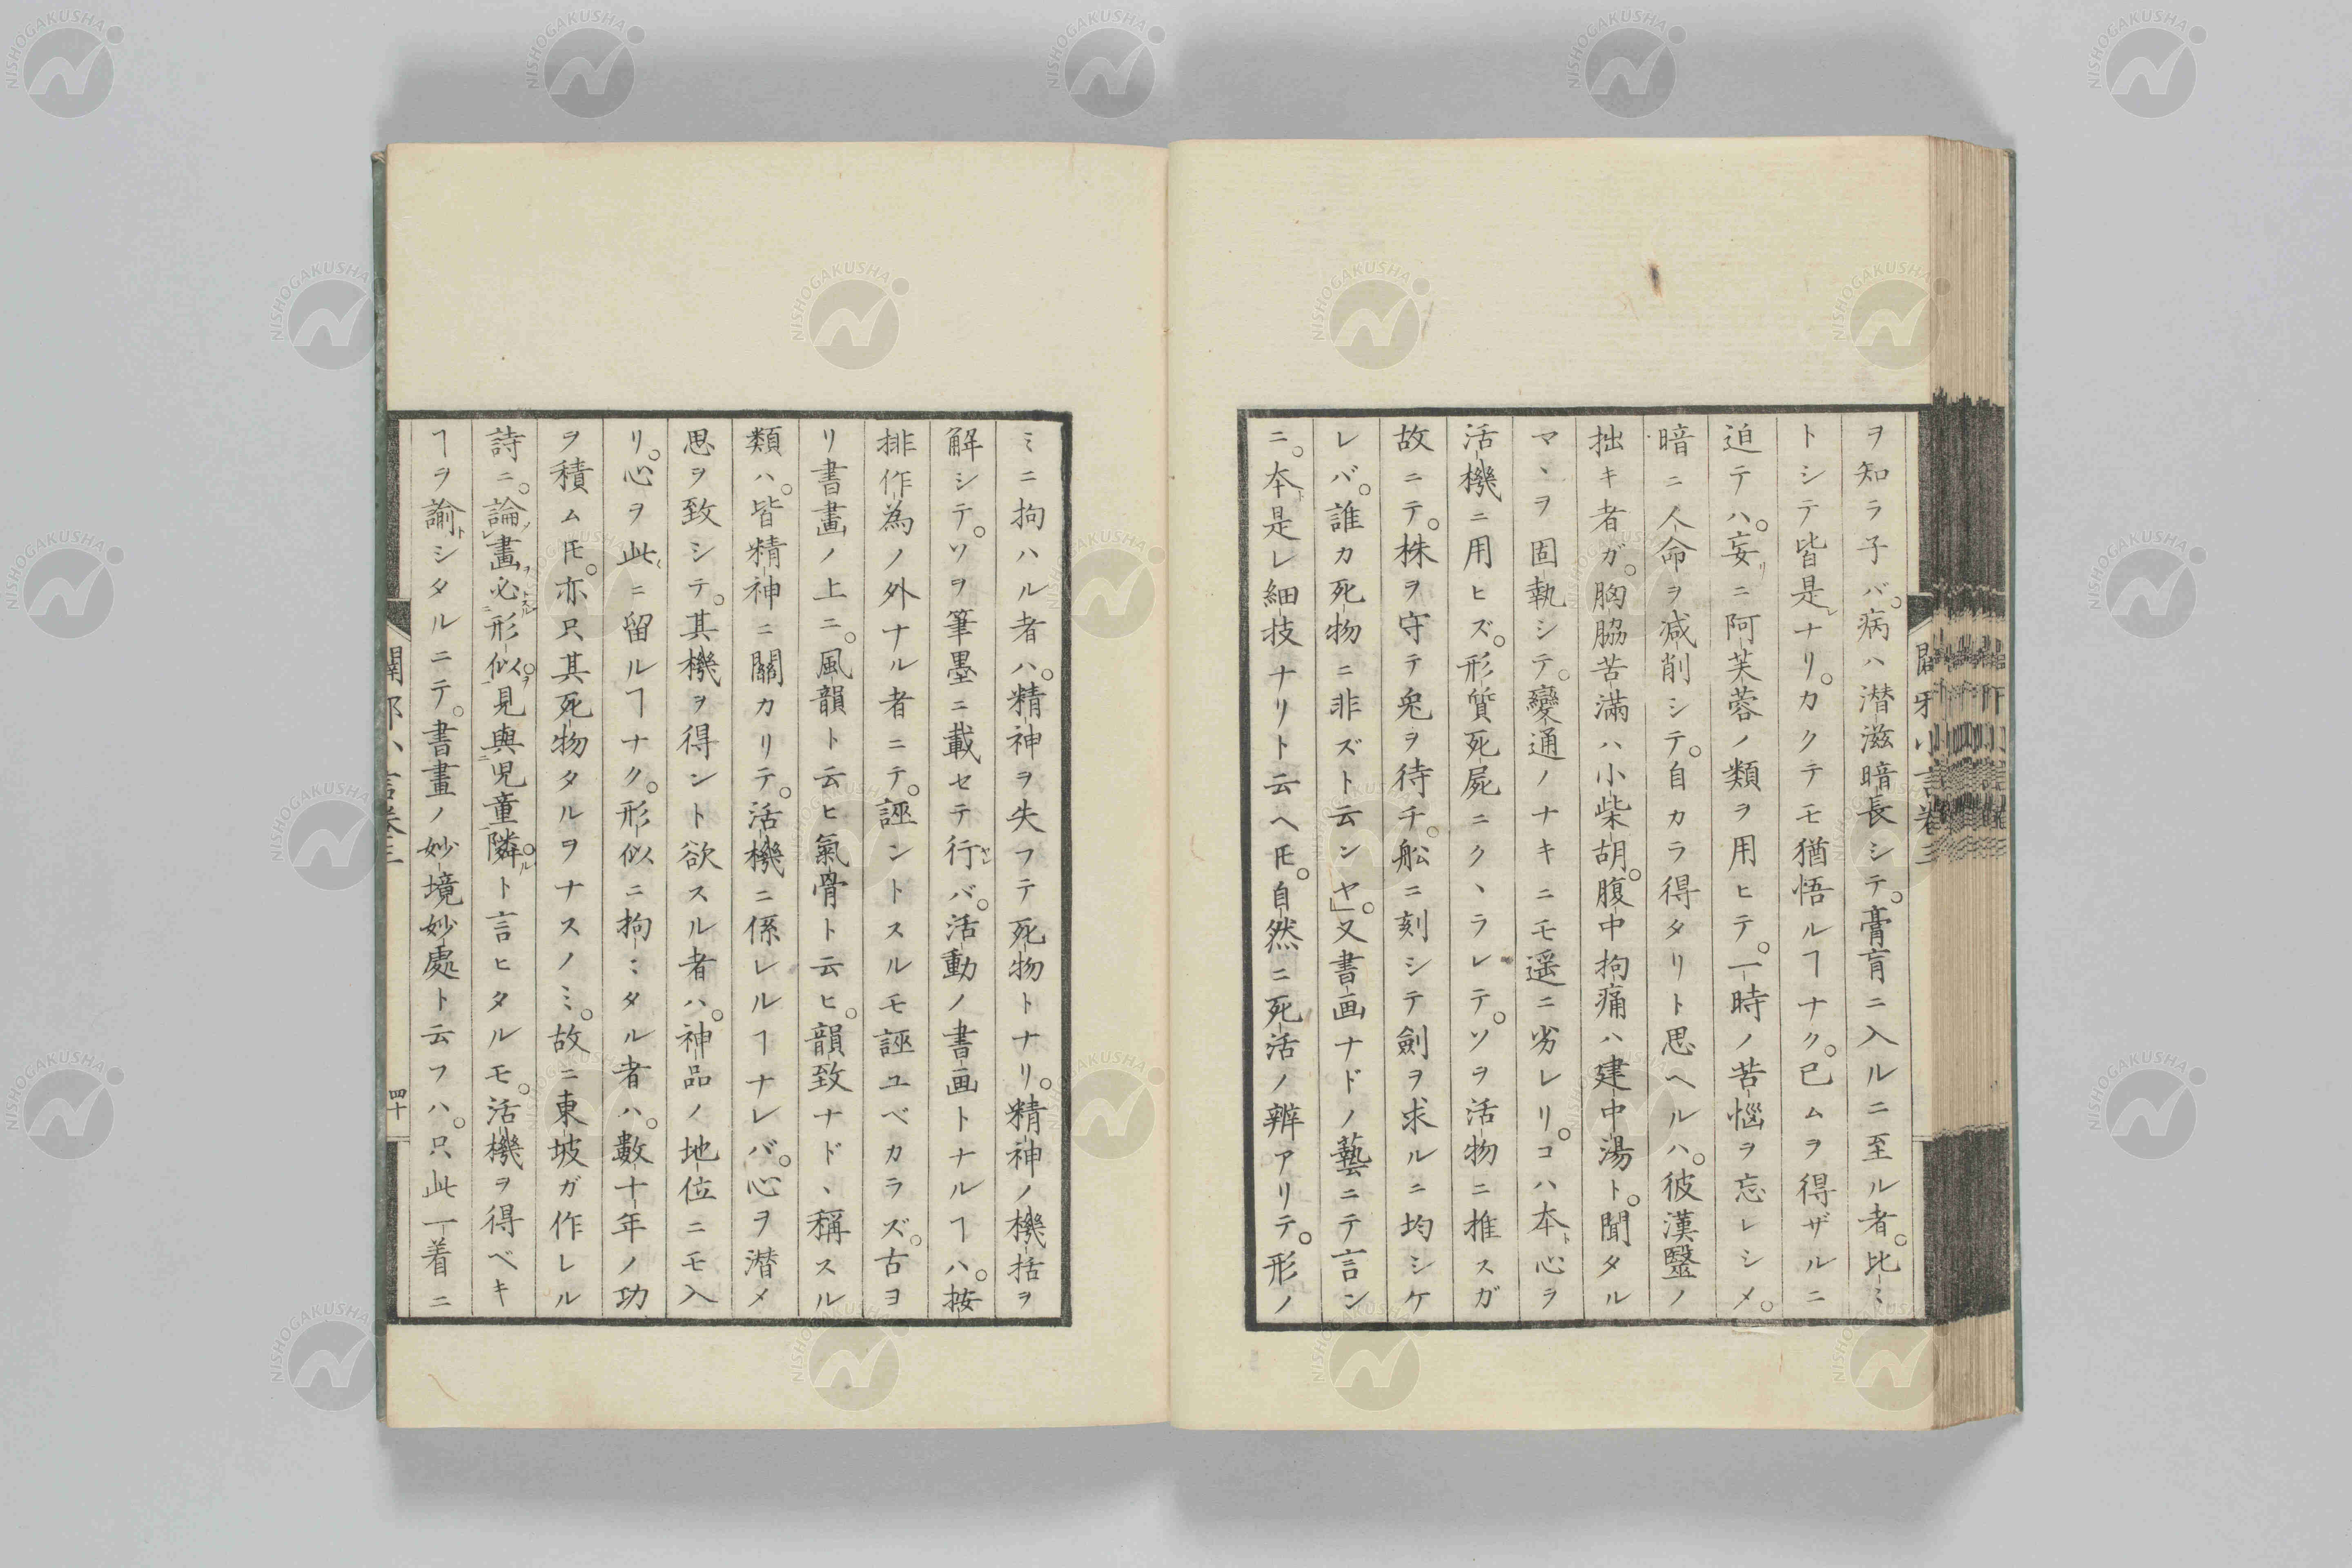 ヲ知ラ子バ。病ハ潜滋暗長シテ。膏肓ニ入ルニ至ル者。比〻
トシテ皆是レナリ。カクテモ猶悟ルヿナク。已ムヲ得ザルニ
迫テハ。妄リニ阿芙蓉ノ類ヲ用ヒテ。一時ノ苦惱ヲ忘レシメ。
暗ニ人命ヲ減削シテ。自カラ得タリト思ヘルハ。彼漢醫ノ
拙キ者ガ。胸脇苦滿ハ小柴胡。腹中拘痛ハ建中湯ト。聞タル
マヽヲ固執シテ。變通ノナキニモ遥ニ劣レリ。コハ本ト心ヲ
活機ニ用ヒズ。形質死屍ニクヽラレテ。ソヲ活物ニ推スガ
故ニテ。株ヲ守テ兔ヲ待チ。舩ニ刻シテ劍ヲ求ルニ均シケ
レバ。誰カ死物ニ非ズト云ンヤ」。又書画ナドノ藝ニテ言ン
ニ。本ト是レ細技ナリト云ヘ𪜈。自然ニ死活ノ辨アリテ。形ノ
鬧牙小言卷三
ミニ拘ハル者ハ。精神ヲ失フテ死物トナリ。精神ノ機括ヲ
解シテ。ソヲ筆墨ニ載セテ行ヤレバ。活動ノ書画トナルヿハ。按
排作為ノ外ナル者ニテ。誣ントスルモ誣ユベカラズ。古ヨ
リ書畫ノ上ニ。風韻ト云ヒ氣骨ト云ヒ。韻致ナドヽ稱スル
類ハ。皆精神ニ關カリテ。活機ニ係レルヿナレバ。心ヲ潜メ
思ヲ致シテ。其機ヲ得ント欲スル者ハ。神品ノ地位ニモ入
リ。心ヲ此ニ留ルヿナク。形似ニ拘〻タル者ハ。數十年ノ功
ヲ積ム𪜈。亦只其死物タルヲナスノミ。故ニ東坡ガ作レル
詩ニ。論畫必形似。見與児童隣。ト言ヒタルモ。活機ヲ得ベキ
ヿヲ諭トシタルニテ。書畫ノ妙境妙處ト云フハ。只此一着ニ
四十